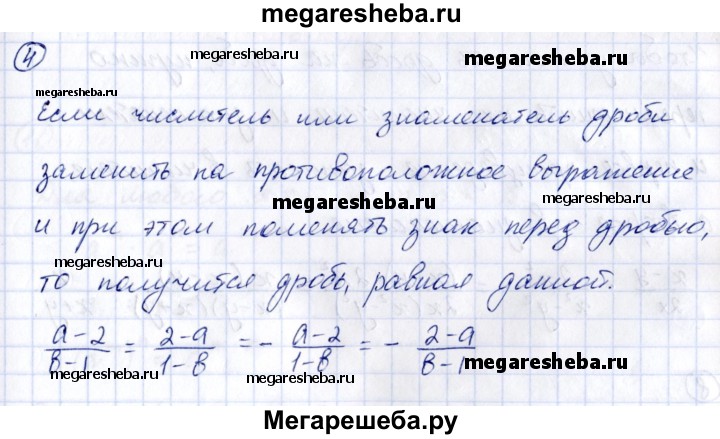 megaresheba.ru
4
megaresheba.ru megaresheba.ru
megaresheba.ru
Если числитель или знаменатель дроби
заменить на противоположное выражение
megaresheba.ru megaresheba.ru
и при этом поменять знак перед дробью,
megaresheba.ru
то получится дробь, равная данной.
a-2/в-1 = 2-a/1-в = - a-2/1-в = - 2-a/в-1
megaresheba.ru megaresheba.ru
Мегарешеба.ру